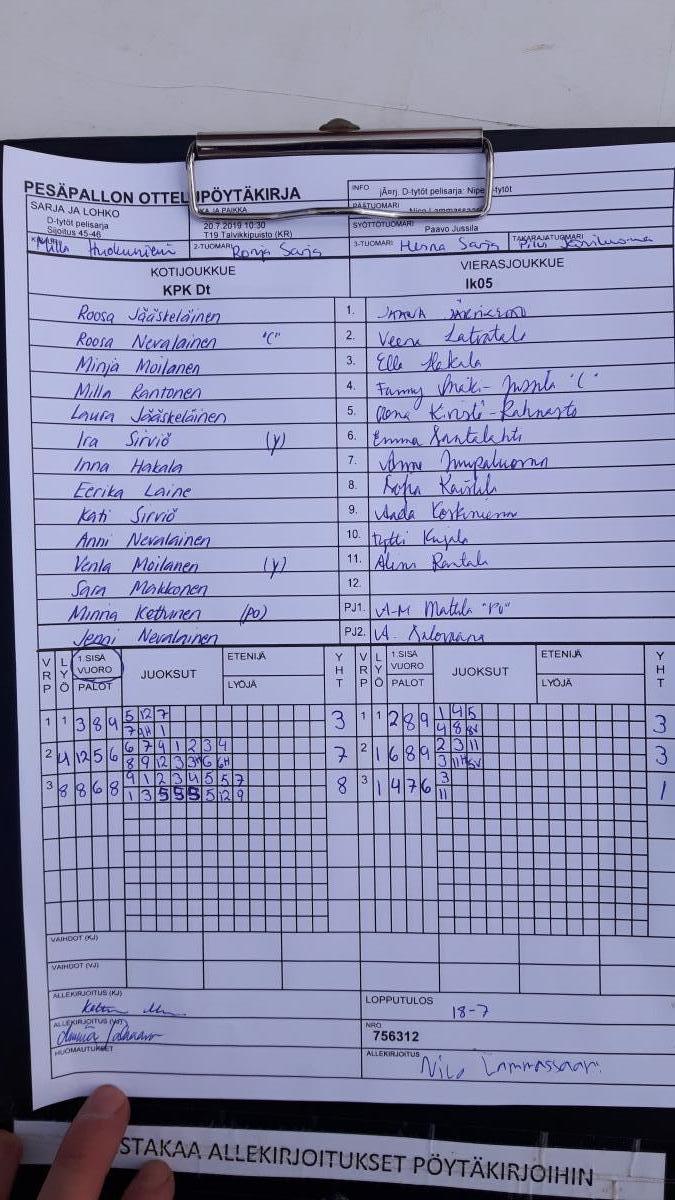 PESÄPALLON OTTELUPÖYTÄKIRJA
SARJA JA LOHKO
D-tytöt pelisarja
Sijoitus 45-46
KA JA PAIKKA
20.7.2019 10:30
T19 Talvikkipuisto (KR)
INFO jÃ¤rj. D-tytöt pelisarja: Nipe -tytöt
PÄÄTUOMARI Nico Lammassaari
SYÖTTÖTUOMARI Paavo Jussila
Milla Huokuniemi
2-TUOMARI Ronja Sarja
3-TUOMARI Henna Sarja
TAKARAJATUOMARI
KOTIJOUKKUE
KPK Dt
VIERASJOUKKUE
Ik05
Roosa Jääskeläinen 1.
Roosa Nevalainen "C" 2. Veera Latvatalo
Minja Moilanen 3. Elle Hakala
Milla Rantonen 4. Fanny Mäki-Jussila "C"
Laura Jääskeläinen 5.
Ira Sirviö (y) 6. Emma Santalahti
Inna Hakala 7.
Eerika Laine 8. Sofia
Kati Sirviö 9. Aada Koskiniemi
Anni Nevalainen 10. Kujala
Venla Moilanen (y) 11. Rantala
Sara Makkonen 12.
Minna Kettunen (po) PJ1. A-M Mattila "PJ"
Jenni Nevalainen PJ2. A.
VRP LYÖ 1.SISÄVUORO PALOT JUOKSUT ETENIJÄ LYÖJÄ YHT VRP LYÖ 1.SISÄ VUORO PALOT JUOKSUT ETENIJÄ LYÖJÄ YHT
1 1 3 8 9 5 12 7 3 1 1 2 8 9 1 4 5 3
7 9H 1 4 8 8V
2 4 12 5 6 6 7 9 1 2 3 4 7 2 1 6 8 9 2 3 11 3
8 9 12 3 3H 6 6H 3 11H 5V
3 8 8 6 8 9 1 2 3 4 5 5 7 8 3 1 4 7 6 3 1
1 3 5 5 5 5 12 9 11
VAIHDOT (KJ)
VAIHDOT (VJ)
ALLEKIRJOITUS (KJ)
ALLEKIRJOITUS (VJ)
HUOMAUTUKSET
LOPPUTULOS 18-7
NRO 756312
ALLEKIRJOITUS Nico Lammassaari
STAKAA ALLEKIRJOITUKSET PÖYTÄKIRJOIHIN